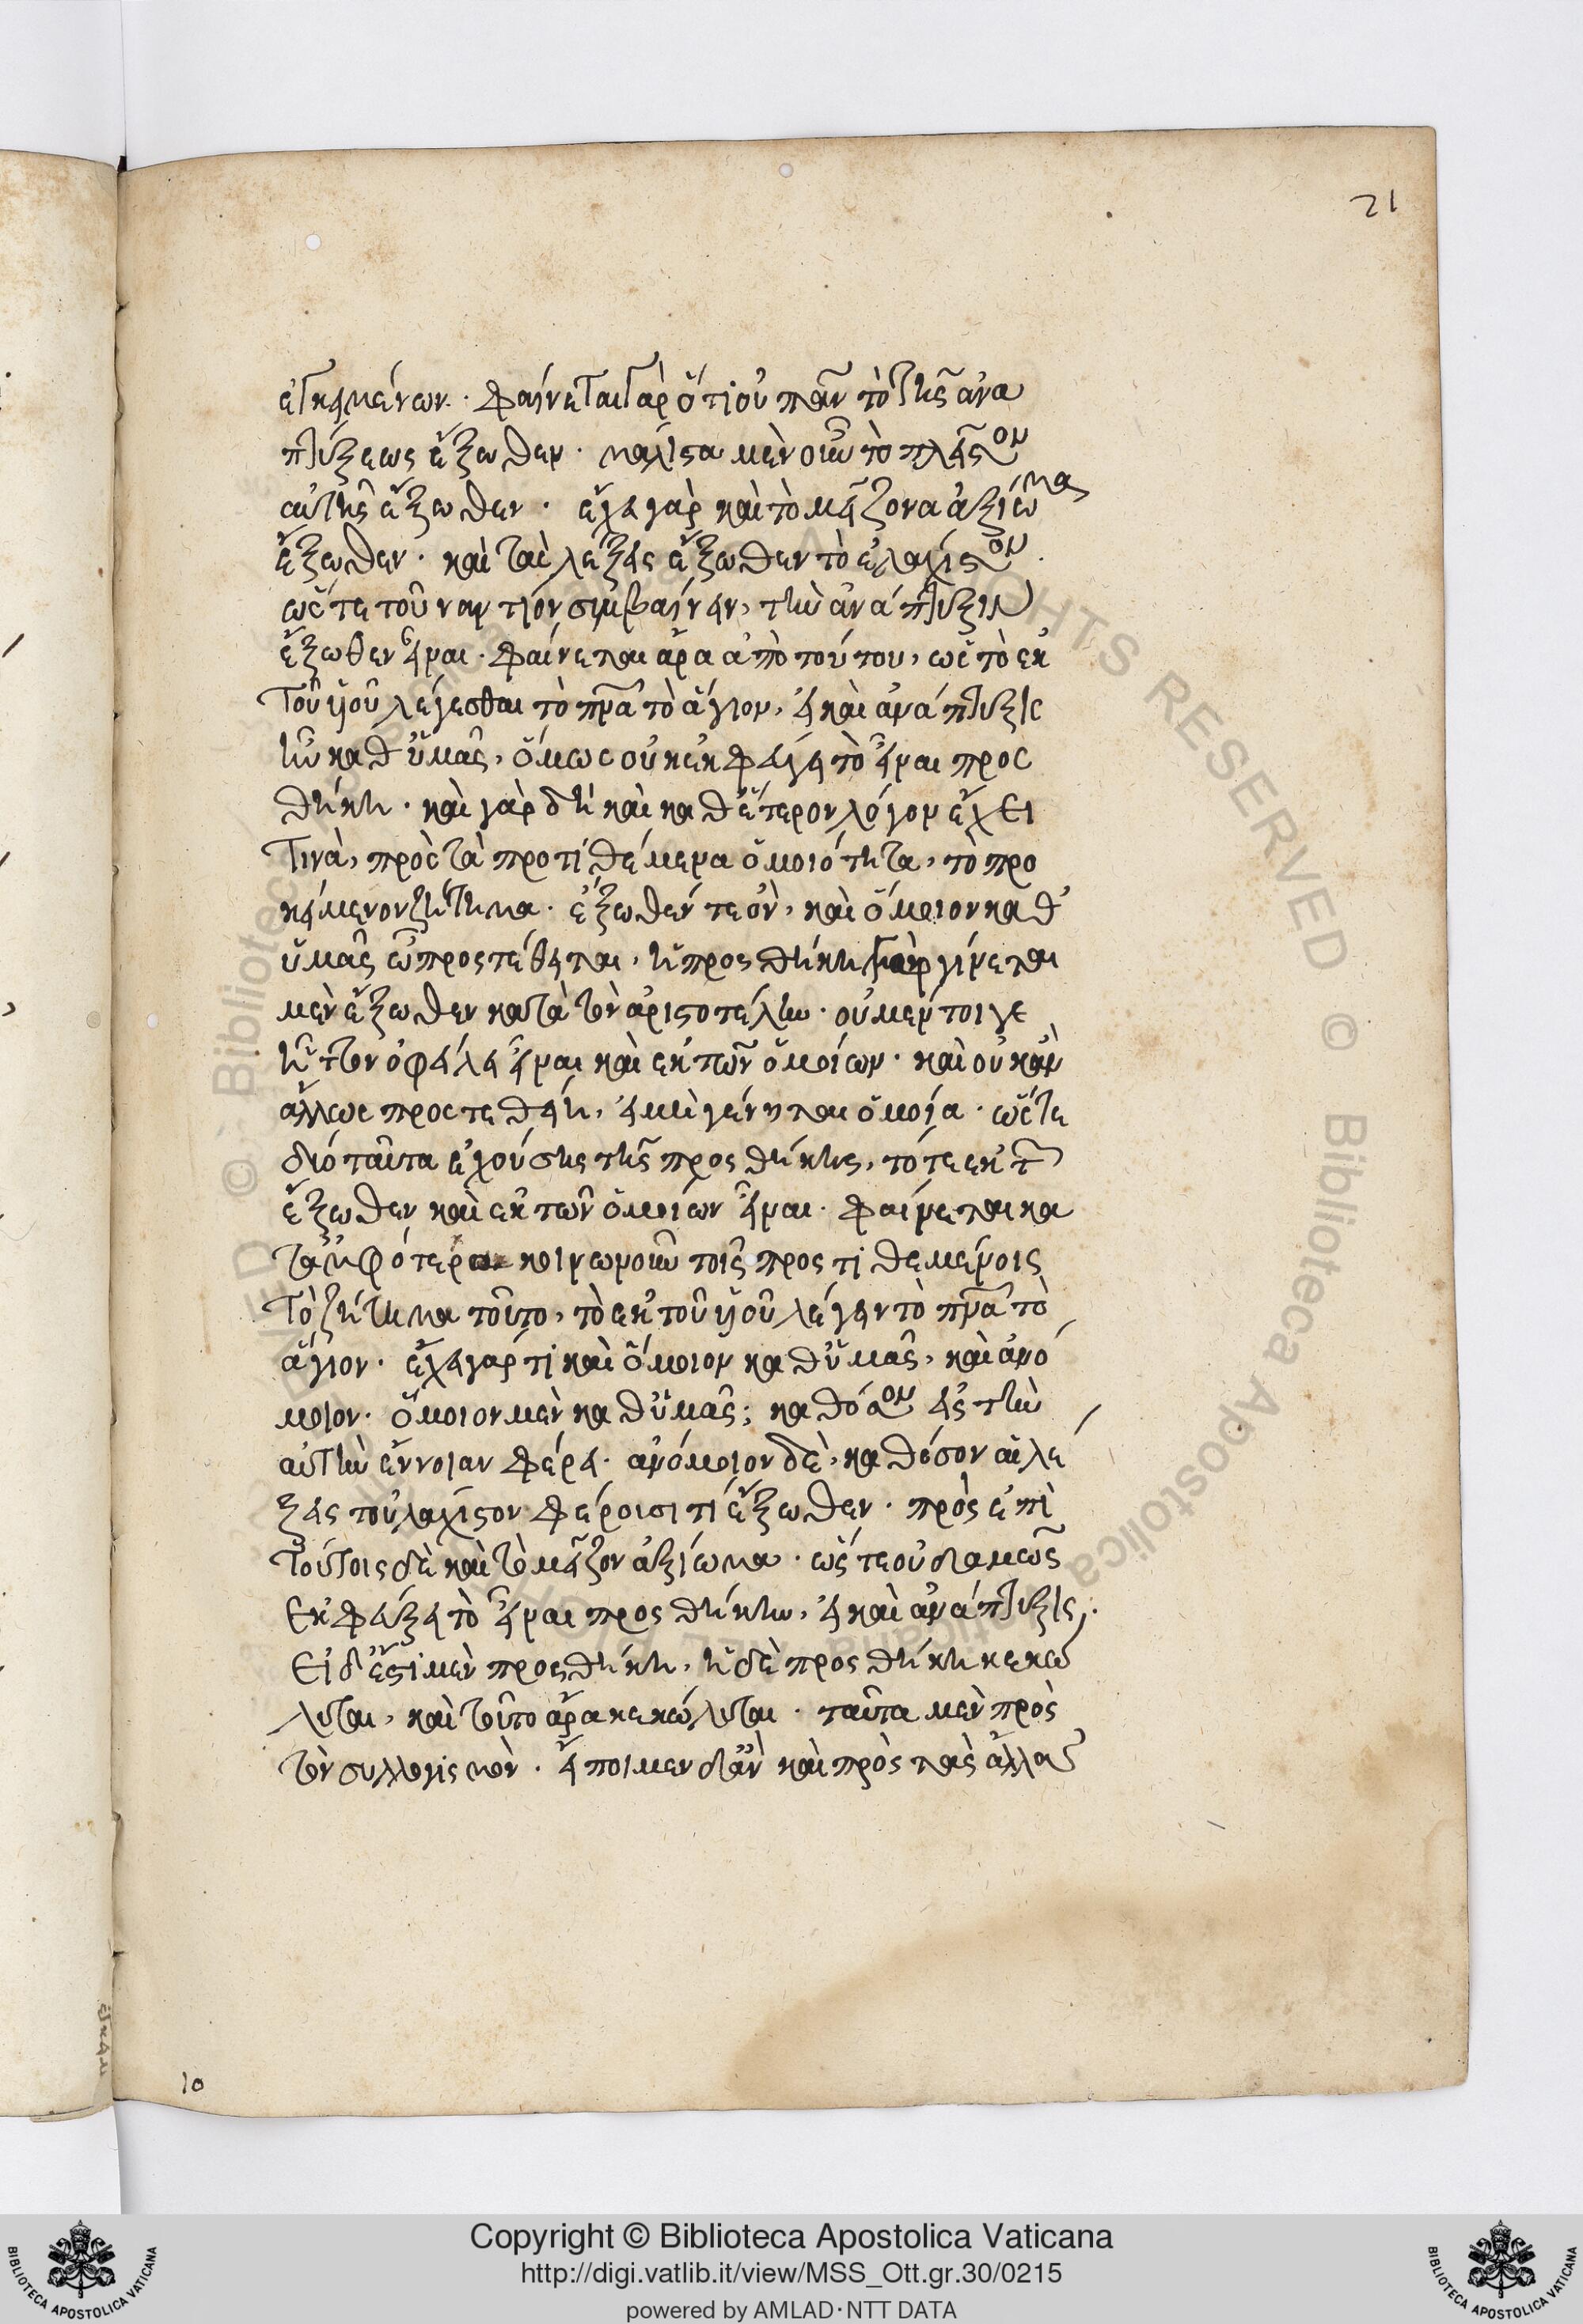 21
ἐγκειμένων. φαίνεται γὰρ ὅτι οὐ πᾶν τὸ τῆς ἀνα
πτύξεως ἔξωθεν. μάλιστα μὲν οὖν τὸ πλεῖστον
αὐτῆς ἔξωθεν. ἔχει γὰρ καὶ τὸ μείζονα ἀξίωμα
ἔξωθεν. καὶ τὰς λέξεις ἔξωθεν τὸ ἐλάχιστον.
ὥστε τοὐναντίον συμβαίνειν, τὴν ἀνάπτυξιν
ἔξωθεν εἶναι. φαίνεται ἄρα ἀπὸ τούτου, ὡς τὸ ἐκ
τοῦ ὑιοῦ λέγεσθαι τὸ πνα τὸ ἅγιον, εἰ καὶ ἀνάπτυξις
ἦν καθ' ὑμᾶς, ὅμως οὐκ ἐκφεύγει τὸ εἶναι προς
θήκη. καὶ γὰρ δὴ καὶ καθ' ἕτερον λόγον ἔχει
τινὰ, πρὸς τὰ προτιθέμενα ὁμοιότητα, τὸ προ
κείμενον ζήτημα. ἔξωθέν τε ὂν, καὶ ὅμοιον καθ'
ὑμᾶς ὧ προστέθειται, ἡ προσθήκη γὰρ γίνεται
μὲν ἔξωθεν κατὰ τὸν ἀριστοτέλην. οὐ μέντοι γε
ἧττον ὀφείλει εἶναι καὶ ἐκ τῶν ὁμοίων. καὶ οὐκ ἂν
ἄλλως προστεθείη, εἰ μὴ γένηται ὁμοία. ὥστε
δύο ταῦτα ἐχούσης τῆς προσθήκης, τό τε ἐκ τ
ἔξωθεν καὶ ἐκ τῶν ὁμοίων εἶναι. φαίνεται κα
τ' ἀμφότερα κοινωνοῦν τοῖς προστιθεμένοις
τὸ ζήτημα τοῦτο, τὸ ἐκ τοῦ ὑιοῦ λέγειν τὸ πνα τὸ
ἅγιον. ἔχει γάρ τι καὶ ὅμοιον καθ' ὑμᾶς, καὶ ἀνό
μοιον. ὅμοιον μὲν καθ' ὑμᾶς; καθόσον εἰς τὴν
αὐτὴν ἔννοιαν φέρει. ἀνόμοιον δὲ, καθόσον αἱ λέ
ξεις τοὐλάχιστον φέρουσί τι ἔξωθεν. πρὸς ἐπὶ
τούτοις δὲ καὶ τὸ μεῖζον ἀξίωμα. ὥστε οὐδαμῶς
ἐκφεύξει τὸ εἶναι προσθήκην, εἰ καὶ ἀνάπτυξις.
εἰ δ' ἔστι μὲν προσθήκη, ἡ δὲ προσθήκη κεκώ
λυται, καὶ τοῦτο ἄρα κεκώλυται. ταῦτα μὲν πρὸς
τὸν συλλογισμόν. εἴποιμεν δ' ἂν καὶ πρὸς τὰς ἄλλας
10
Copyright © Biblioteca Apostolica Vaticana
http://digi.vatlib.it/view/MSS_Ott.gr.30/0215
powered by AMLAD·NTT DATA